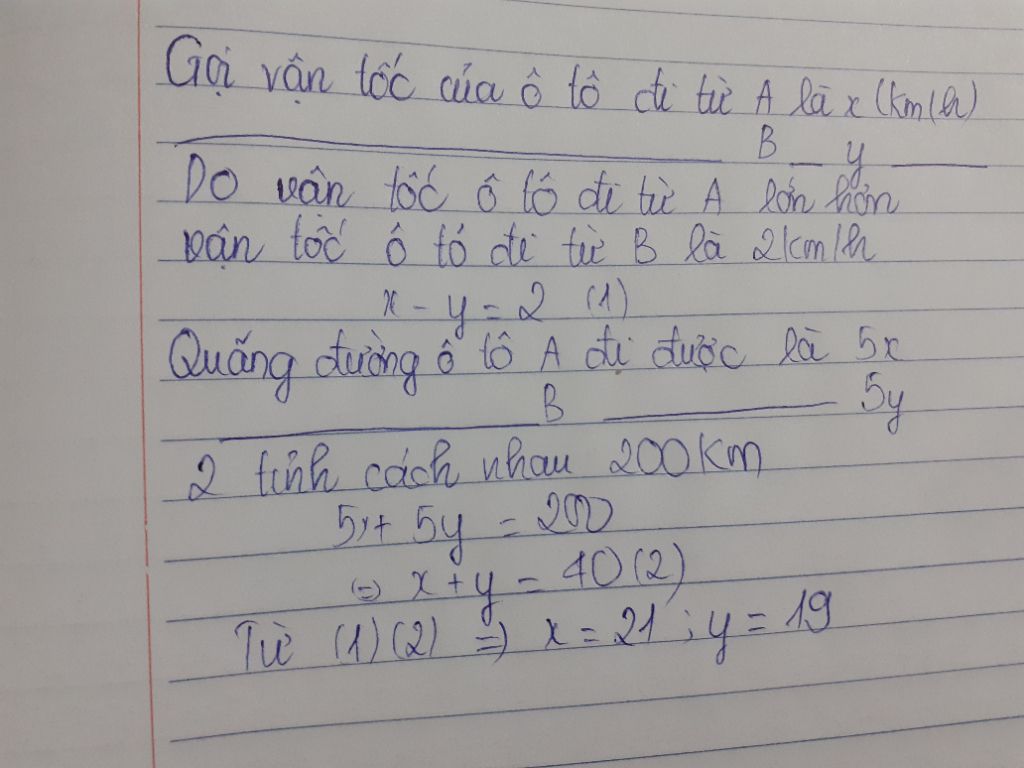 Gọi vận tốc của ô tô đi từ A là x (km/h)
B y
Do vận tốc ô tô đi từ A lớn hơn
vận tốc ô tô đi từ B là 2km/h
x - y = 2 (1)
Quãng đường ô tô A đi được là 5x
B 5y
2 tỉnh cách nhau 200km
5x + 5y = 200
(=) x + y = 40 (2)
Từ (1) (2) =) x = 21 ; y = 19